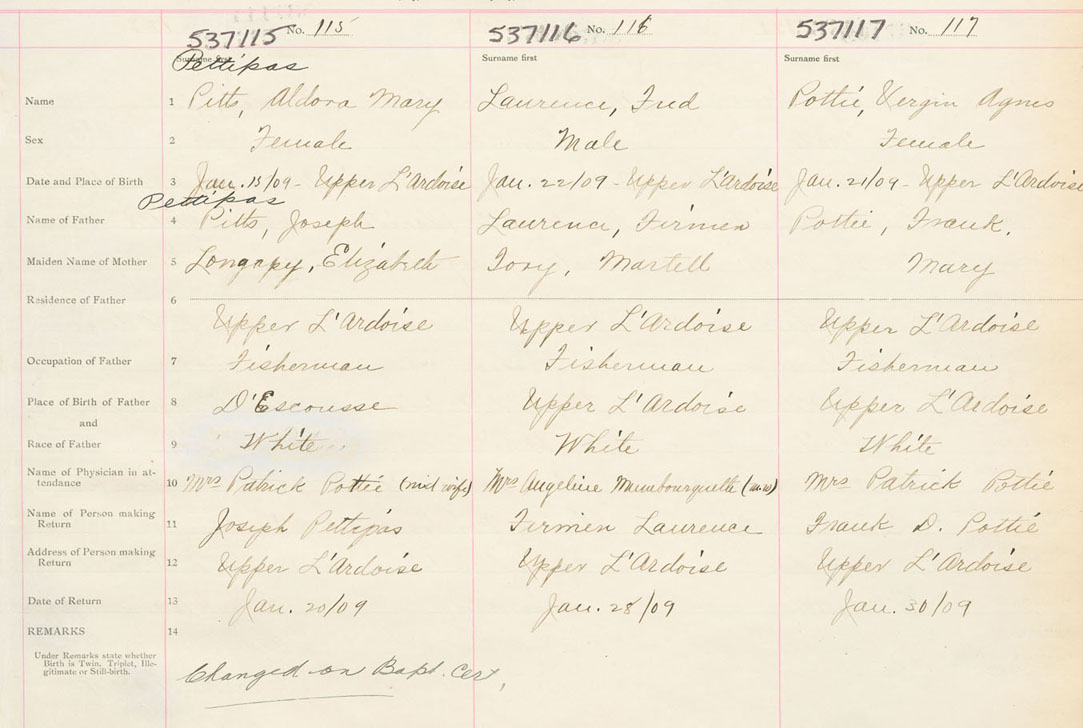 537115 No. 115 537116 No. 116 537117 No. 117
Surname first Surname first Surname first
Pettipas
Name 1 Pitts, Aldora Mary Laurence, Fred Pottié, Vergin Agnes
Sex 2 Female Male Female
Date and Place of Birth 3 Jan. 15/09 - Upper L'Ardoise Jan. 22/09 - Upper L'Ardoise Jan. 21/09 - Upper L'Ardoise
Pettipas
Name of Father 4 Pitts, Joseph Laurence, Firmen Pottie, Frank.
Maiden Name of Mother 5 Longapy, Elizabeth Tory, Martell Mary
Residence of Father 6
Upper L'Ardoise Upper L'Ardoise Upper L'Ardoise
Occupation of Father 7 Fisherman Fisherman Fisherman
Place of Birth of Father 8 D'Escousse Upper L'Ardoise Upper L'Ardoise
and
Race of Father 9 White White White
Name of Physician in at-
tendance 10 Mrs Patrick Pottié (mid wife) Mrs Angeline Mumbourquette (m.w) Mrs Patrick Pottié
Name of Person making
Return 11 Joseph Pettipas Firmen Laurence Frank D. Pottié
Address of Person making
Return 12 Upper L'Ardoise Upper L'Ardoise Upper L'Ardoise
Date of Return 13 Jan. 20/09 Jan. 28/09 Jan. 30/09
REMARKS 14
Under Remarks state whether
Birth is Twin, Triplet, Ille-
gitimate or Still-birth.
Changed on Bapt. Cer,